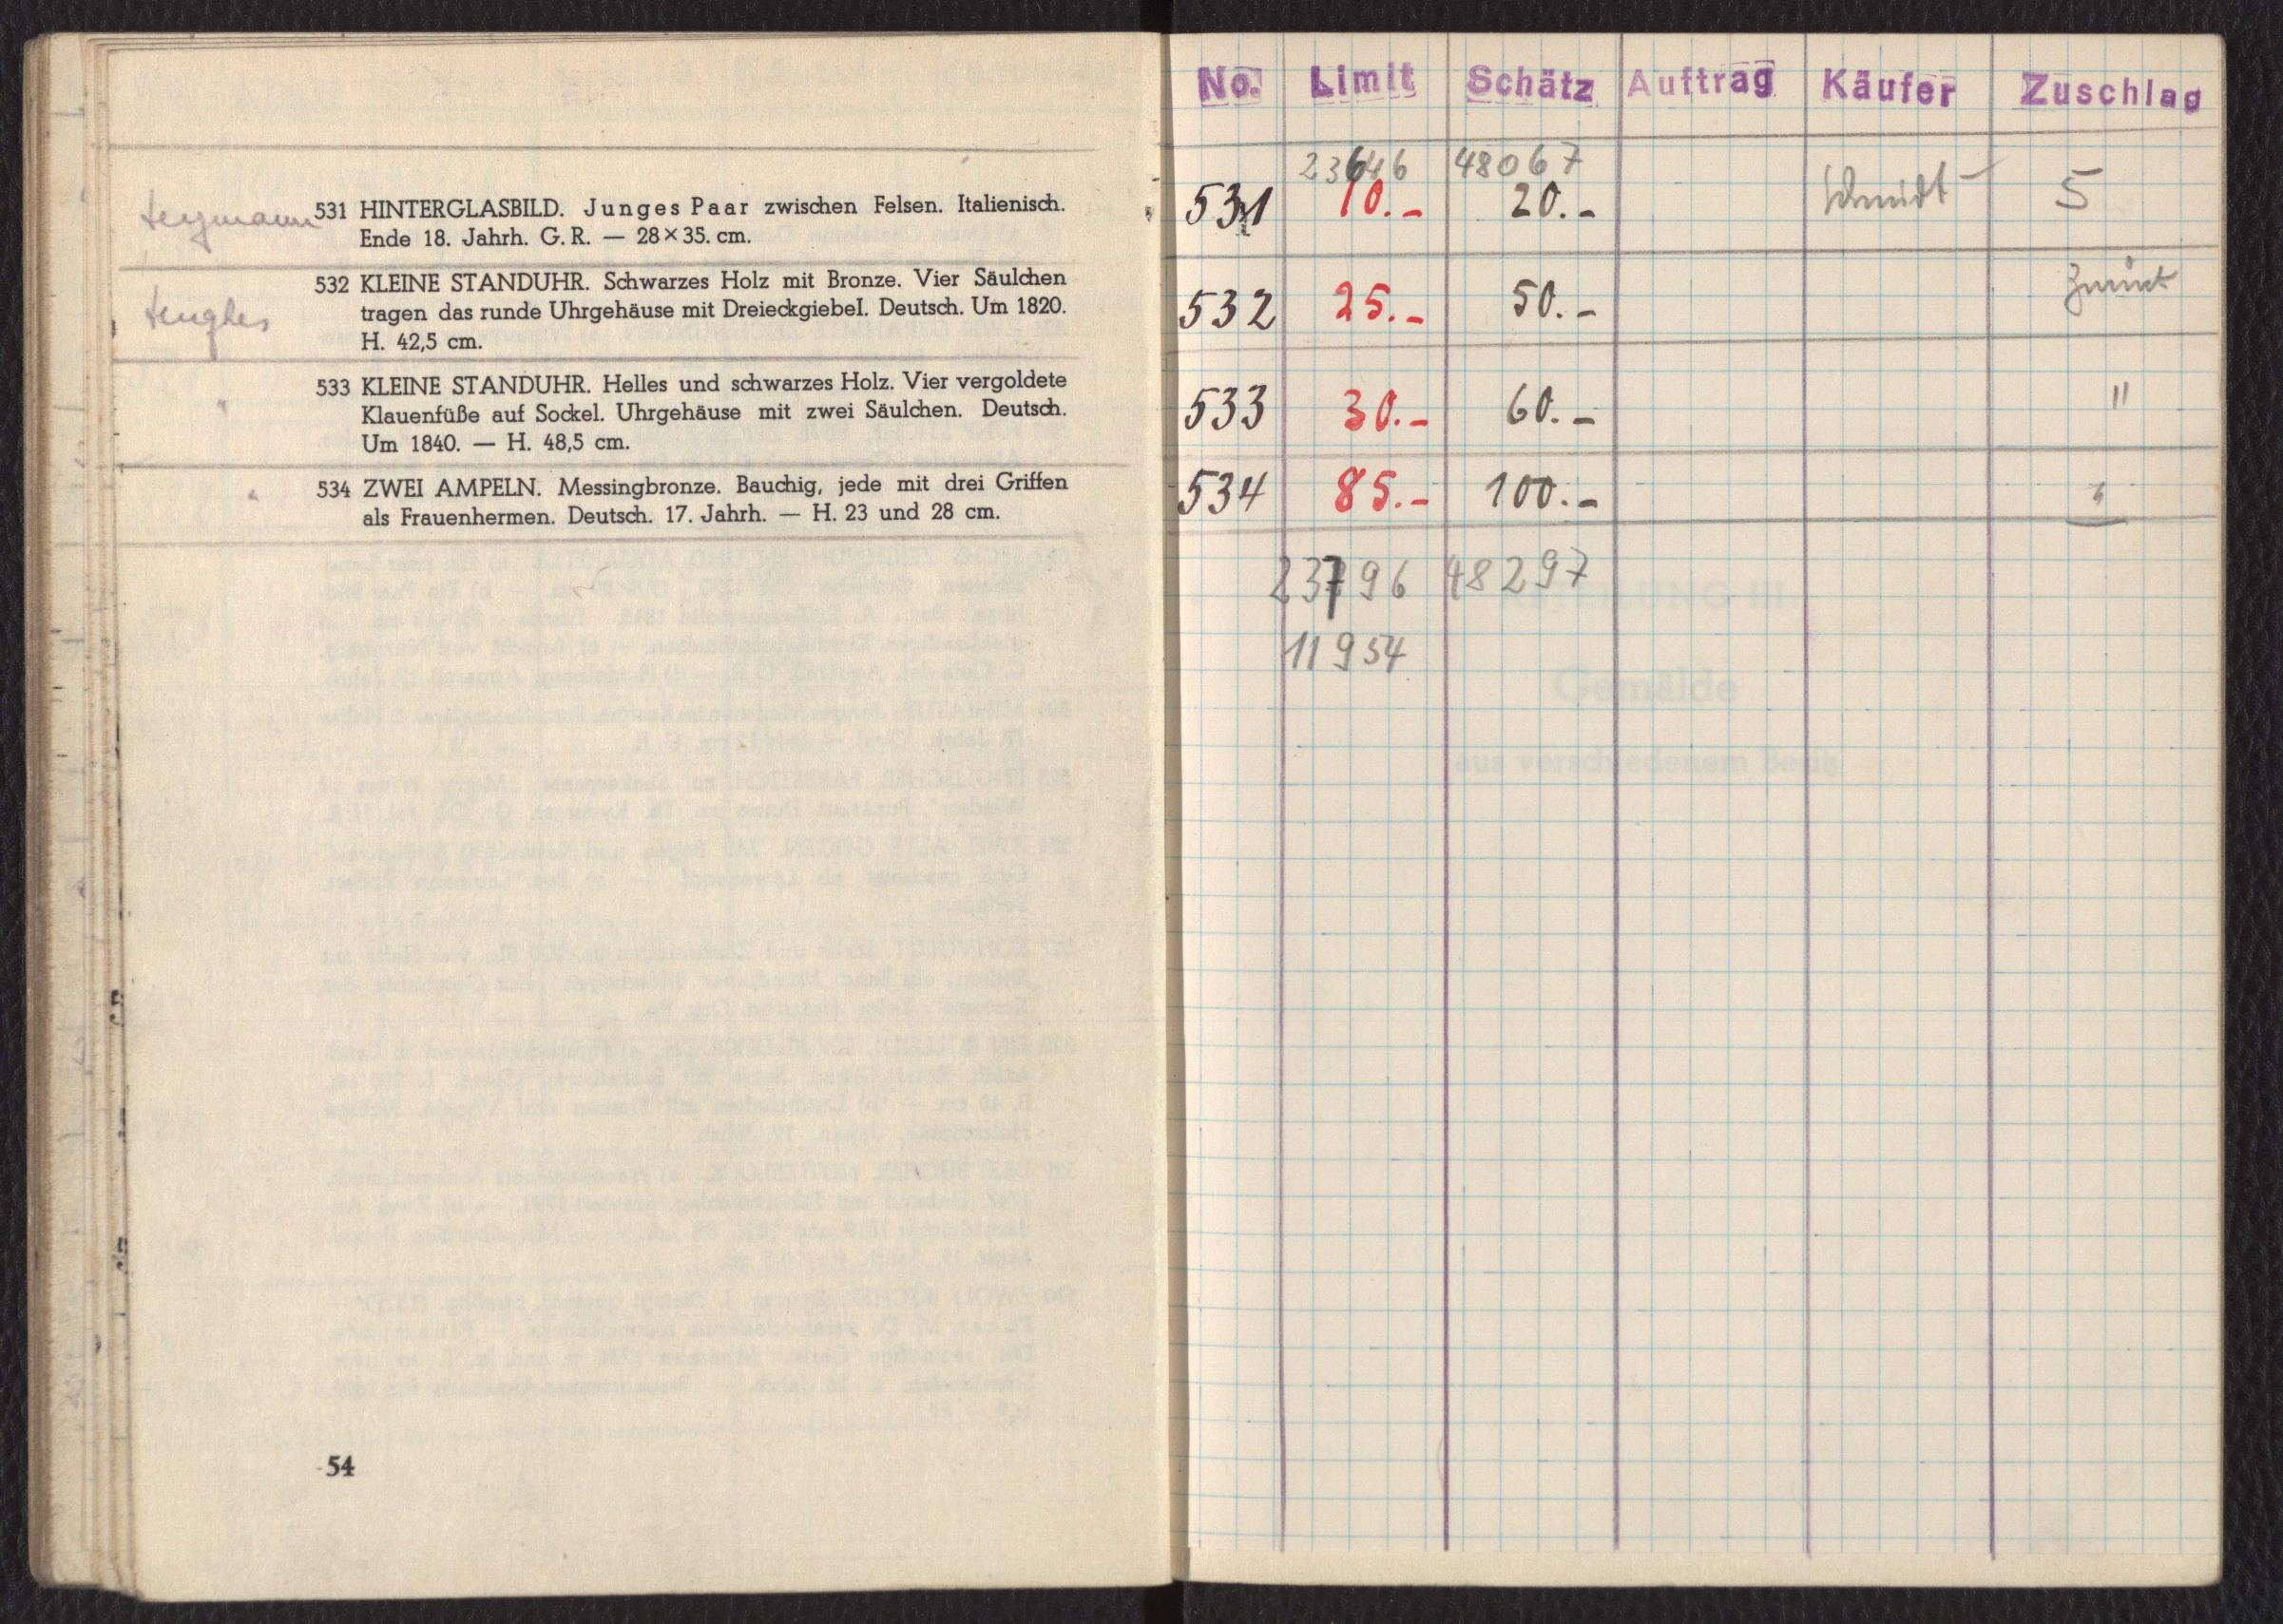 531 HINTERGLASBILD. Junges Paar zwischen Felsen. Italienisch.
Ende 18. Jahrh. G. R. — 28×35. cm.
532 KLEINE STANDUHR. Schwarzes Holz mit Bronze. Vier Säulchen
tragen das runde Uhrgehäuse mit Dreieckgiebel. Deutsch. Um 1820.
H. 42,5 cm.
533 KLEINE STANDUHR. Helles und schwarzes Holz. Vier vergoldete
Klauenfüße auf Sockel. Uhrgehäuse mit zwei Säulchen. Deutsch.
Um 1840. — H. 48,5 cm.
534 ZWEI AMPELN. Messingbronze. Bauchig, jede mit drei Griffen
als Frauenhermen. Deutsch. 17. Jahrh. — H. 23 und 28 cm.
54
No. Limit Schätz Auftrag Käufer Zuschlag
23646 48067
531 10.- 20.- Schmidt 5
532 25.- 50.- Zurück
533 30.- 60.- "
534 85.- 100.- "
23796 48297
11954
Gemälde
aus verschiedenem Besitz